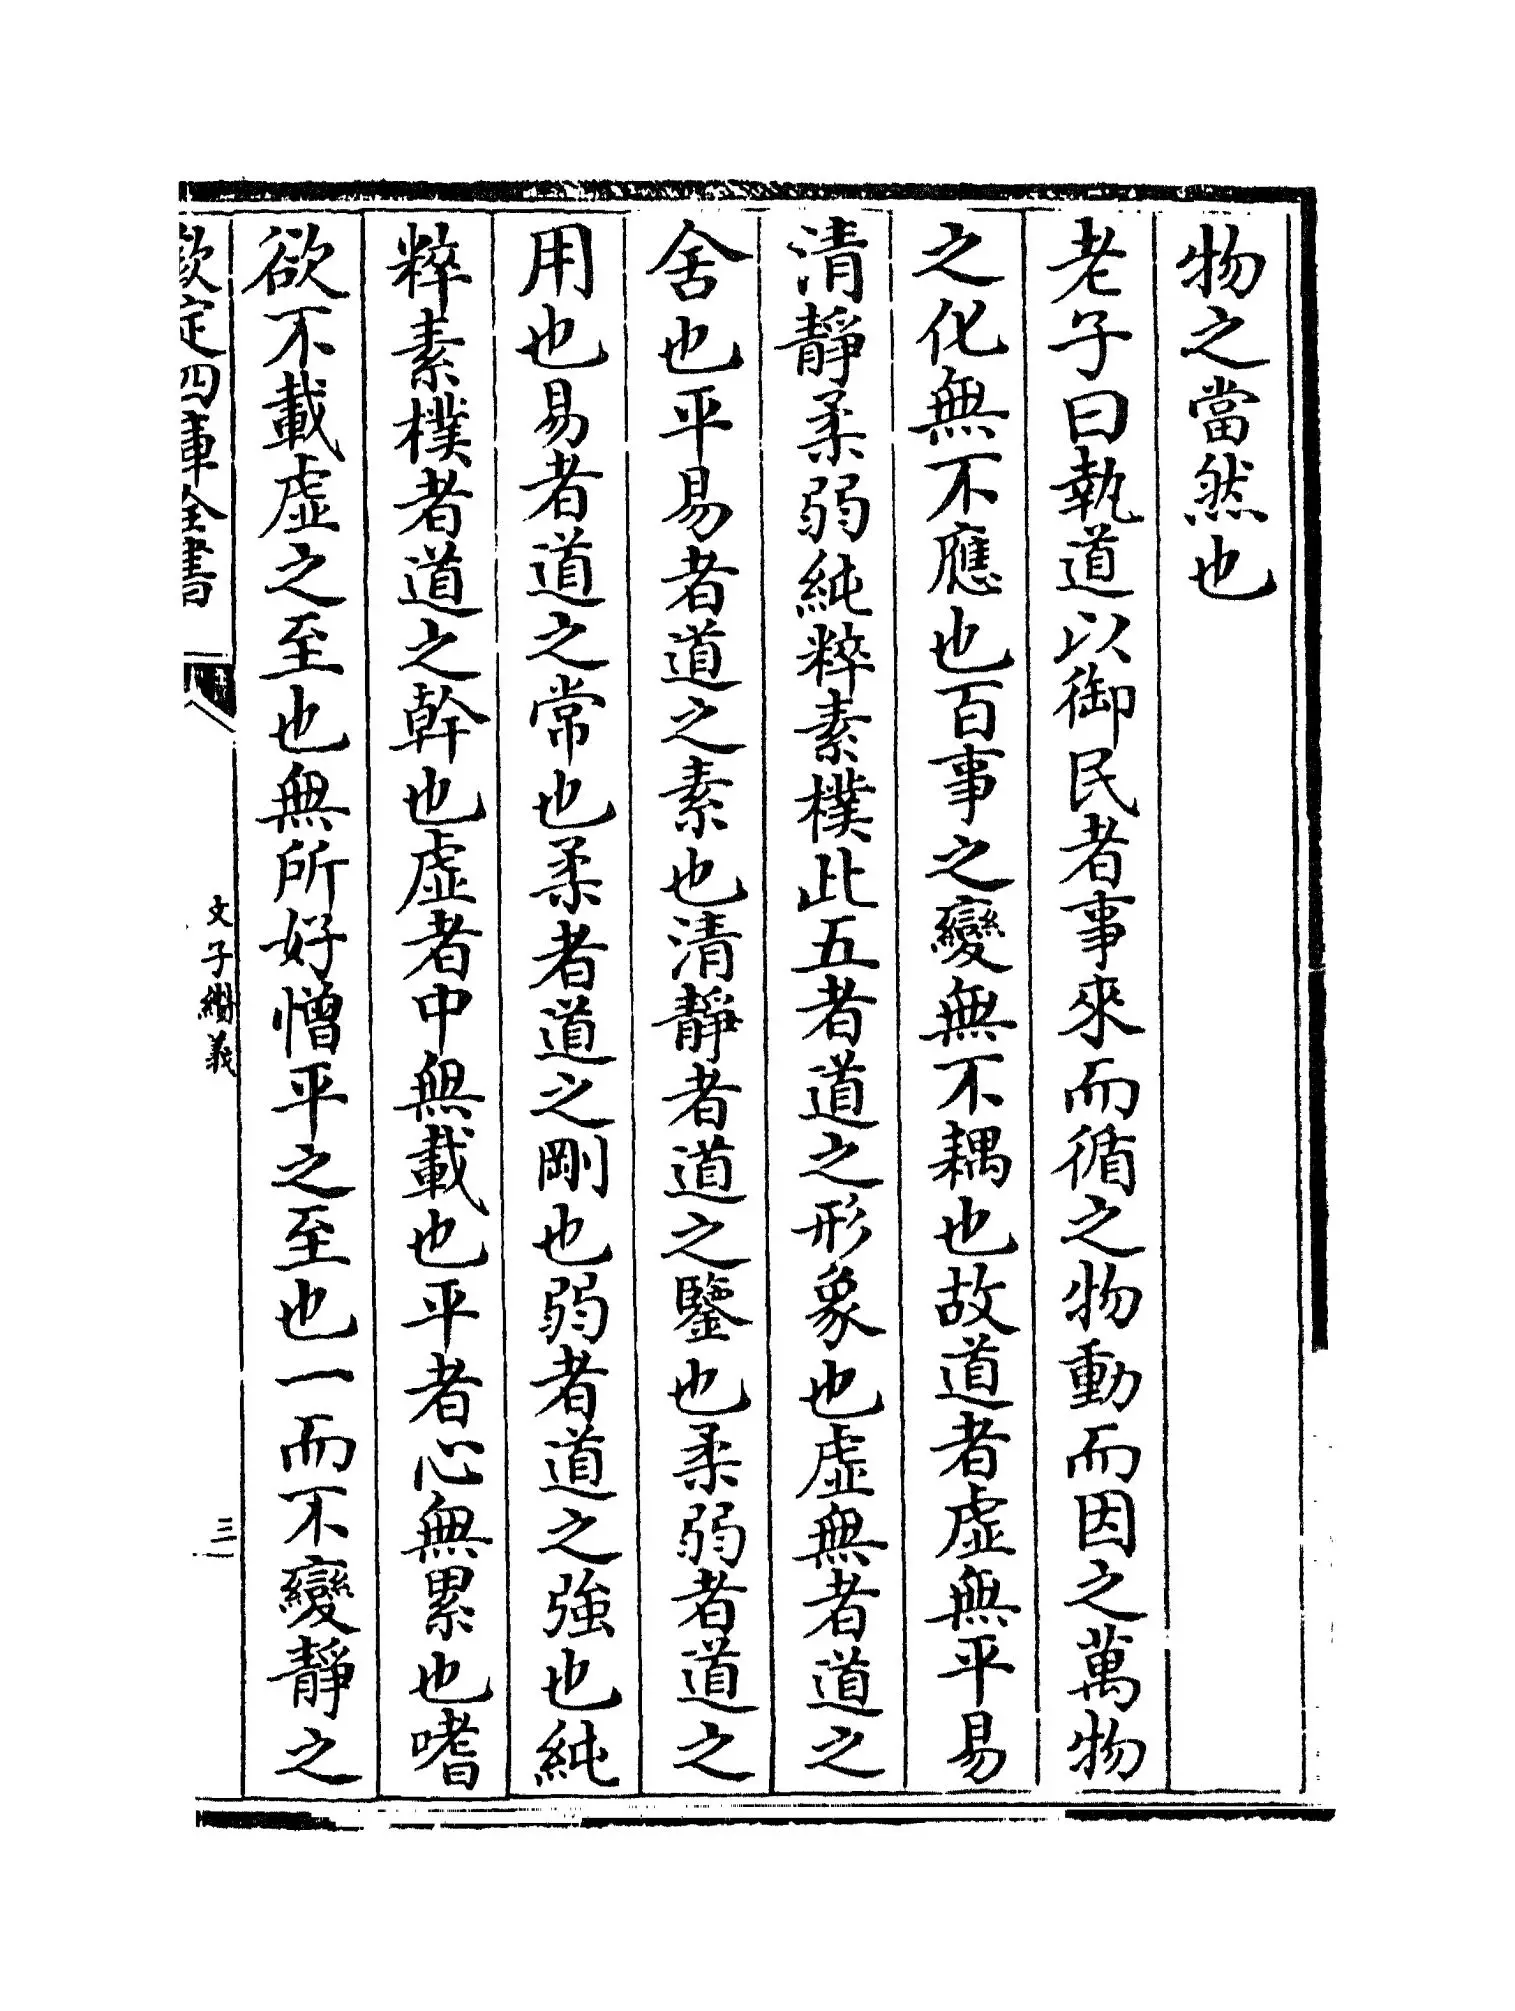 物之當然也
老子曰執道以御民者事來而循之物動而因之萬物
之化無不應也百事之變無不耦也故道者虛無平易
清靜柔弱純粹素樸此五者道之形象也虛無者道之
舍也平易者道之素也清靜者道之鑒也柔弱者道之
用也易者道之常也柔者道之剛也弱者道之強也純
粹素樸者道之幹也虛者中無載也平者心無累也嗜
欲不載虛之至也無所好憎平之至也一而不變靜之
欽定四庫全書
文子纘義
三